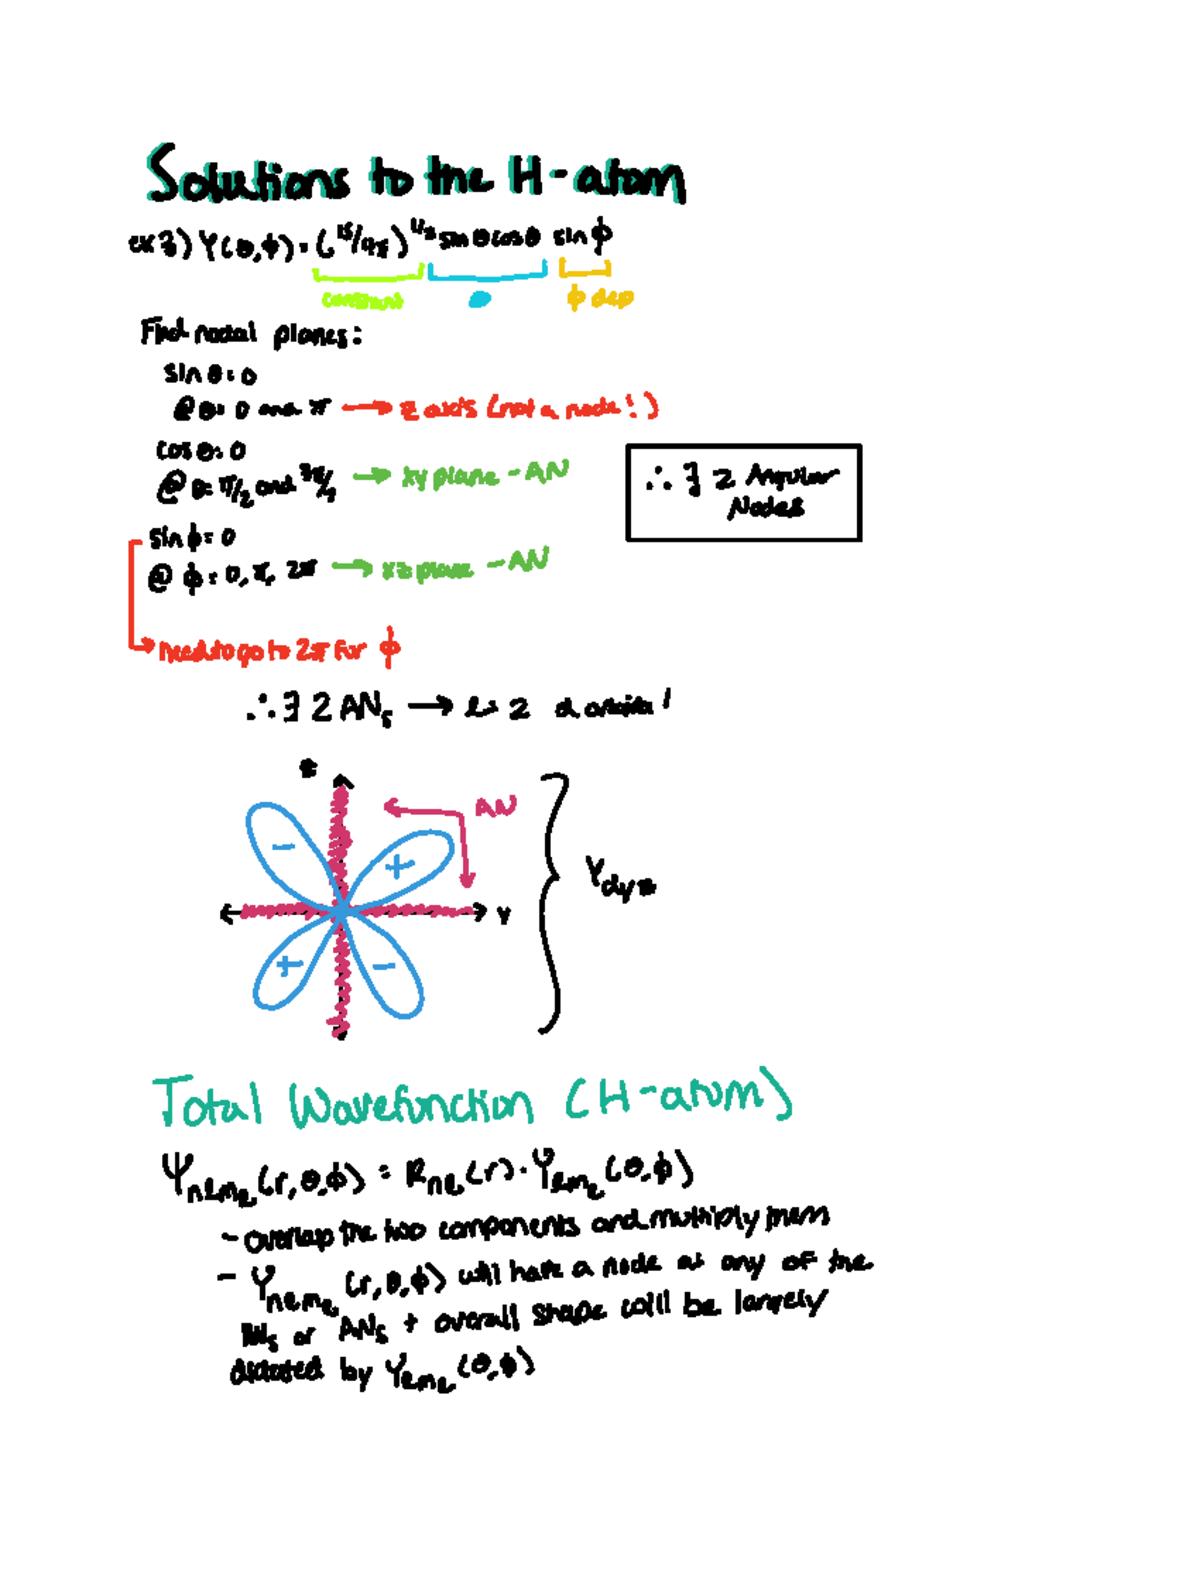 Solutions to the H-atom
ex 3) Y(θ,ϕ) = (15/4π)^1/2 sinθcosθ sinϕ
constant θ ϕ dep
Find nodal planes:
sin θ = 0
@ θ = 0 and π → z axis (not a node!)
cos θ = 0
@ θ = π/2 and 3π/2 → xy plane - AN
∴ ∃ 2 Angular
Nodes
sin ϕ = 0
@ ϕ = 0, π, 2π → xz plane - AN
need to go to 2π for ϕ
∴ ∃ 2 ANs → l = 2 d orbital!
z
AN
- +
Y dyz
y
+ -
Total Wavefunction (H-atom)
Ψnlml (r,θ,ϕ) = Rnl(r)·Ylml (θ,ϕ)
- overlap the two components and multiply them
- Ψnlml (r,θ,ϕ) will have a node at any of the
RNs or ANs + overall shape will be largely
dictated by Ylml (θ,ϕ)